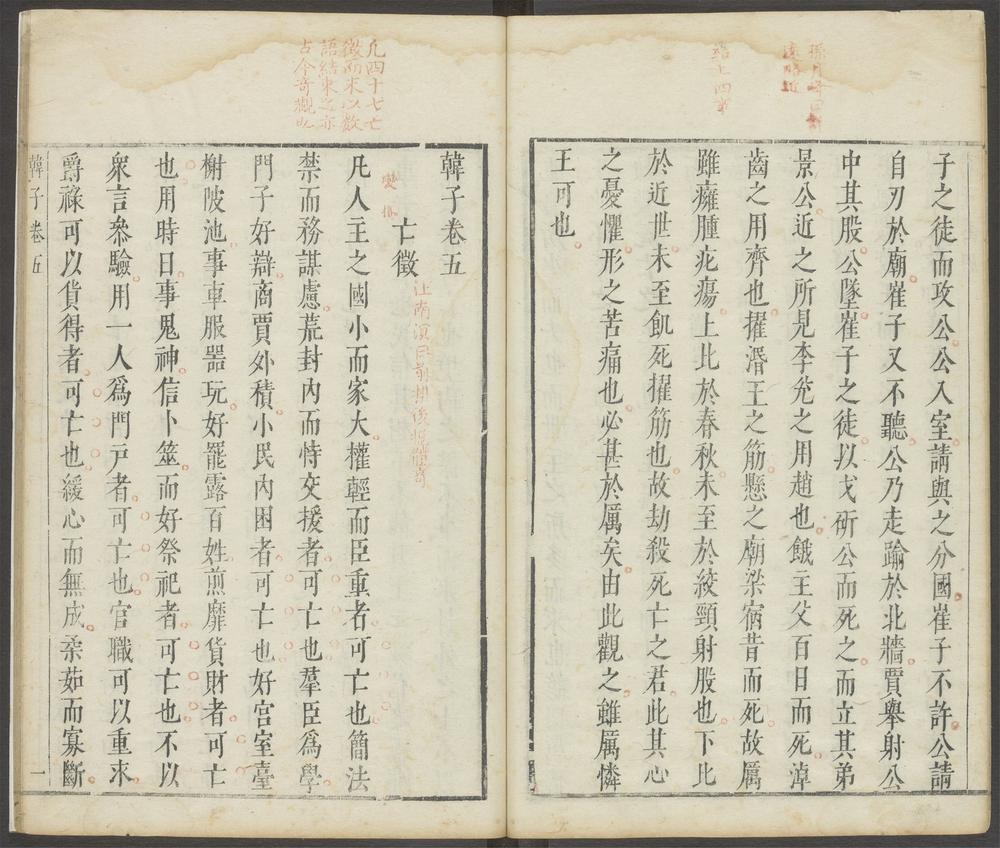 子之徒而攻公公入室請與之分國崔子不許公請
自刃於廟崔子又不聽公乃走踰於北牆賈舉射公
中其股公墜崔子之徒以戈斫公而死之而立其弟
景公近之所見李兊之用趙也餓主父百日而死淖
齒之用齊也擢湣王之筋懸之廟梁宿昔而死故厲
雖癰腫疕瘍上比於春秋未至於絞頸射股也下比
於近世未至飢死擢筋也故劫殺死亡之君此其心
之憂懼形之苦痛也必甚於厲矣由此觀之雖厲憐
王可也
凡四十七亡
徵而末以數
語結束之亦
古今奇觀也
韓子卷五
亡徵
凡人主之國小而家大權輕而臣重者可亡也簡法
禁而務謀慮荒封內而恃交援者可亡也羣臣爲學
門子好辯商賈外積小民內困者可亡也好宮室臺
榭陂池事車服器玩好罷露百姓煎靡貨財者可亡
也用時日事鬼神信卜筮而好祭祀者可亡也不以
衆言叅驗用一人爲門戸者可亡也官職可以重求
爵祿可以貨得者可亡也緩心而無成柔茹而寡斷
韓子卷五
一